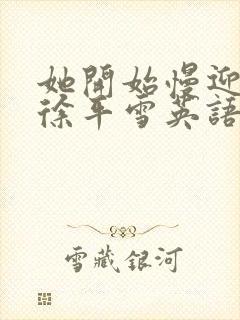 她開始慢迎
徐平雪英語
雪藏銀河